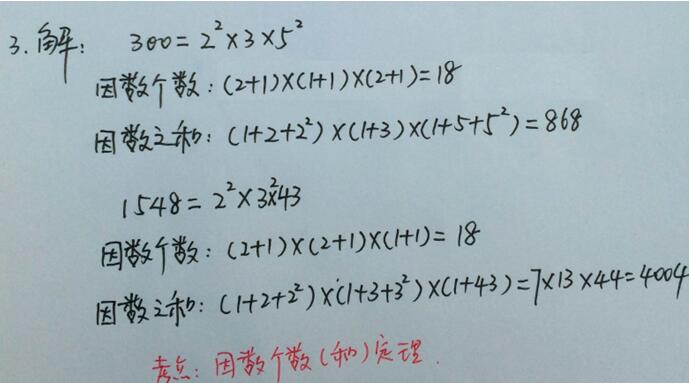 3. 解: 300=2²×3×5²
因数个数: (2+1)×(1+1)×(2+1)=18
因数之和: (1+2+2²)×(1+3)×(1+5+5²)=868
1548=2²×3²×43
因数个数: (2+1)×(2+1)×(1+1)=18
因数之和: (1+2+2²)×(1+3+3²)×(1+43)=7×13×44=4004
考点: 因数个数(和)定理.